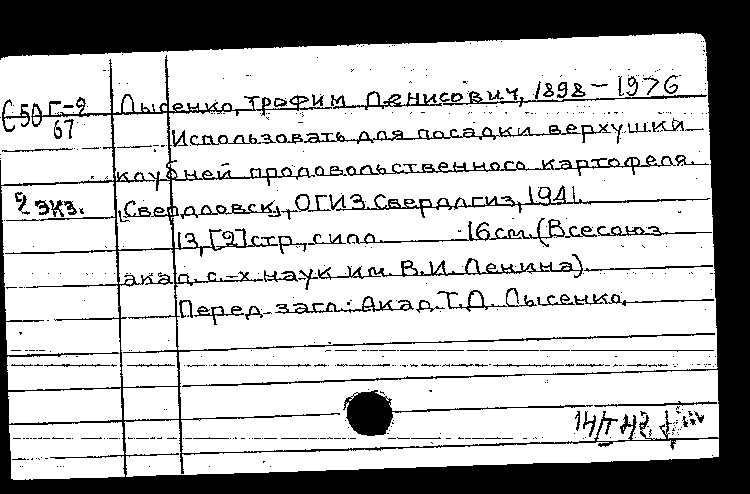 С50 Г-2
67
Лысенко, Трофим Денисович, 1898-1976
Использовать для посадки верхушки
клубней продовольственного картофеля.
2 экз.
[Свердловск], ОГИЗ. Свердлгиз, 1941.
13, [2] стр., силл. 16 см. (Всесоюз.
акад. с.-х. наук им. В.И. Ленина).
Перед загл.: Акад. Т.Д. Лысенко.
14/I 42.